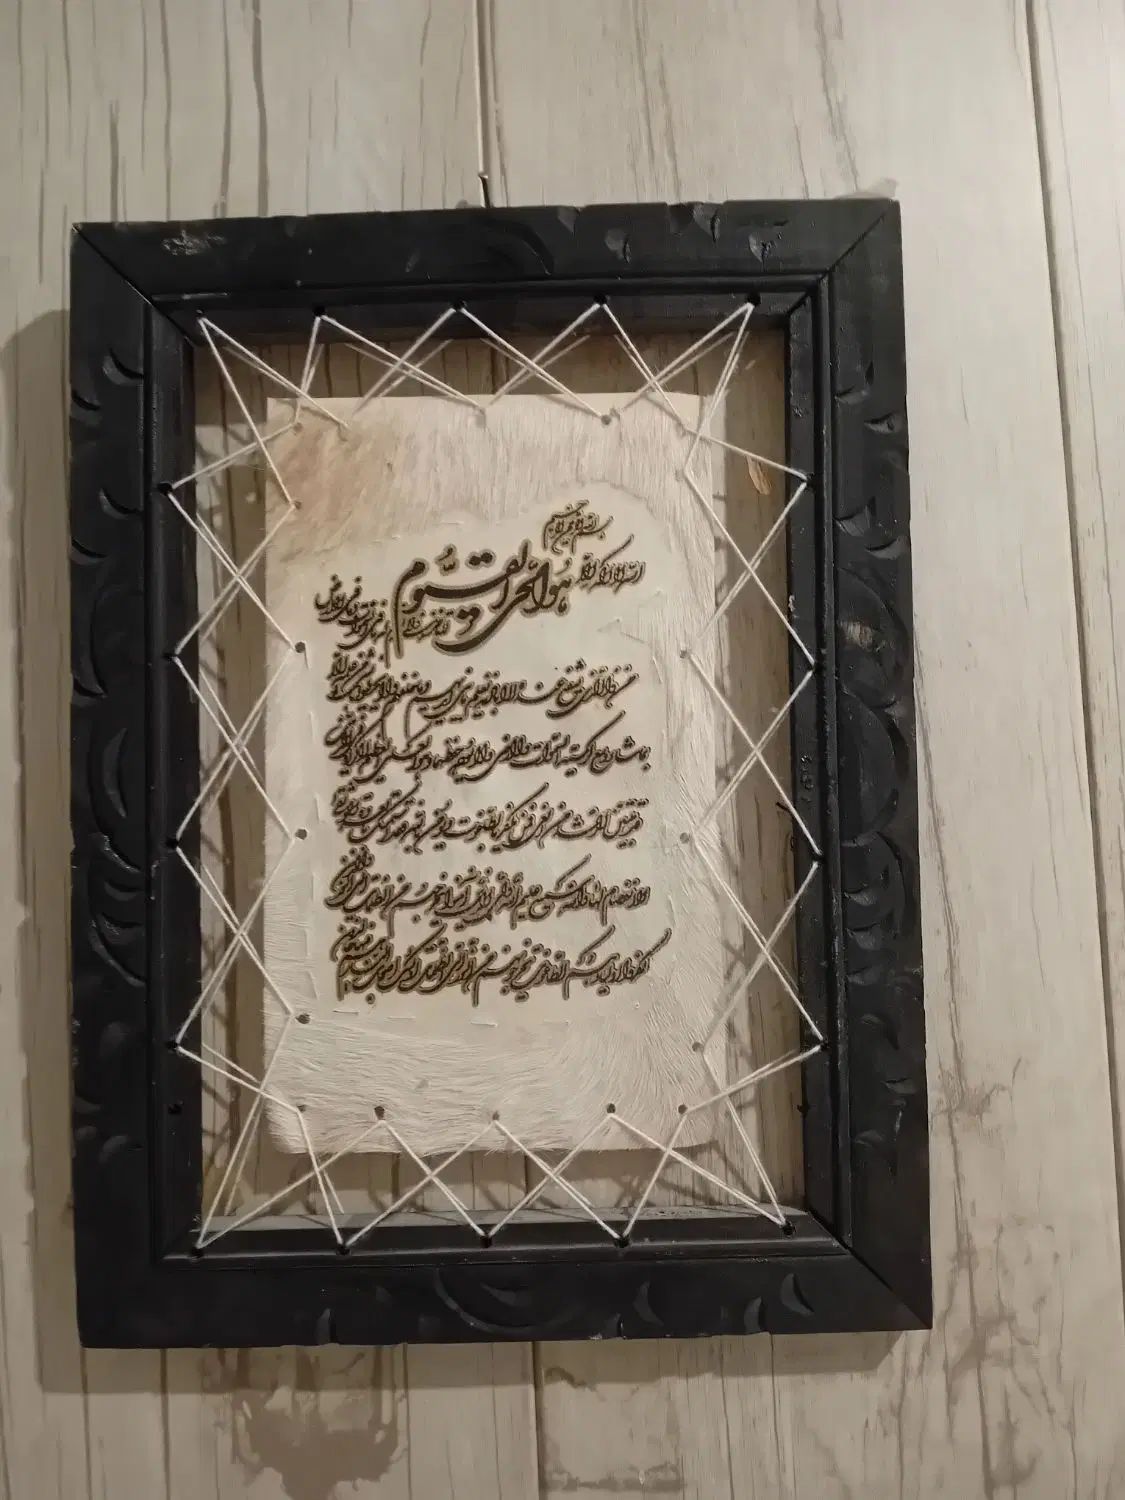 بسم الله الرحمن الرحیم
الله لا اله الا
هُوَ الحَیُّ القَیّوم
لا تأخذه سنة و لا نوم له ما فی السموات و ما فی الارض
من ذا الذی یشفع عنده الا باذنه یعلم ما بین ایدیهم و ما خلفهم و لا یحیطون بشیء من علمه الا
بما شاء وسع کرسیه السموات و الارض و لا یوده حفظهما و هو العلی العظیم لا اکراه فی الدین
قد تبین الرشد من الغی فمن یکفر بالطاغوت و یومن بالله فقد استمسک بالعروة الوثقی
لا انفصام لها و الله سمیع علیم الله ولی الذین آمنوا یخرجهم من الظلمات الی النور و الذین
کفروا اولیاوهم الطاغوت یخرجونهم من النور الی الظلمات اولئک اصحاب النار هم فیها خالدون